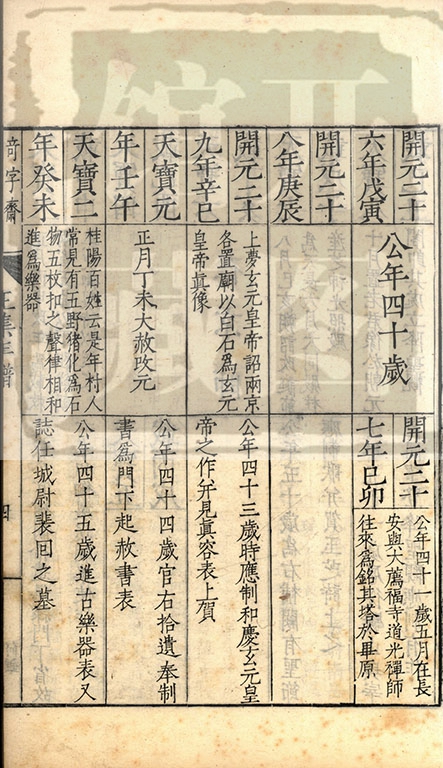 開元二十
六年戊寅
公年四十歲
開元二十
七年己卯
公年四十一歲五月在長
安與大薦福寺道光禪師
往來爲銘其塔於畢原
開元二十
八年庚辰
開元二十
九年辛巳
上夢玄元皇帝詔兩京
各置廟以白石爲玄元
皇帝眞像
公年四十三歲時應制和慶玄元皇
帝之作幷見眞容表上賀
天寶元
年壬午
正月丁未大赦改元
公年四十四歲官右拾遺奉制
書爲門下起赦書表
天寶二
年癸未
桂陽百姓云是年村人
常見有五野猪化爲石
物五枚扣之聲律相和
進爲樂器
公年四十五歲進古樂器表又
誌任城尉裴回之墓
奇字齋
四